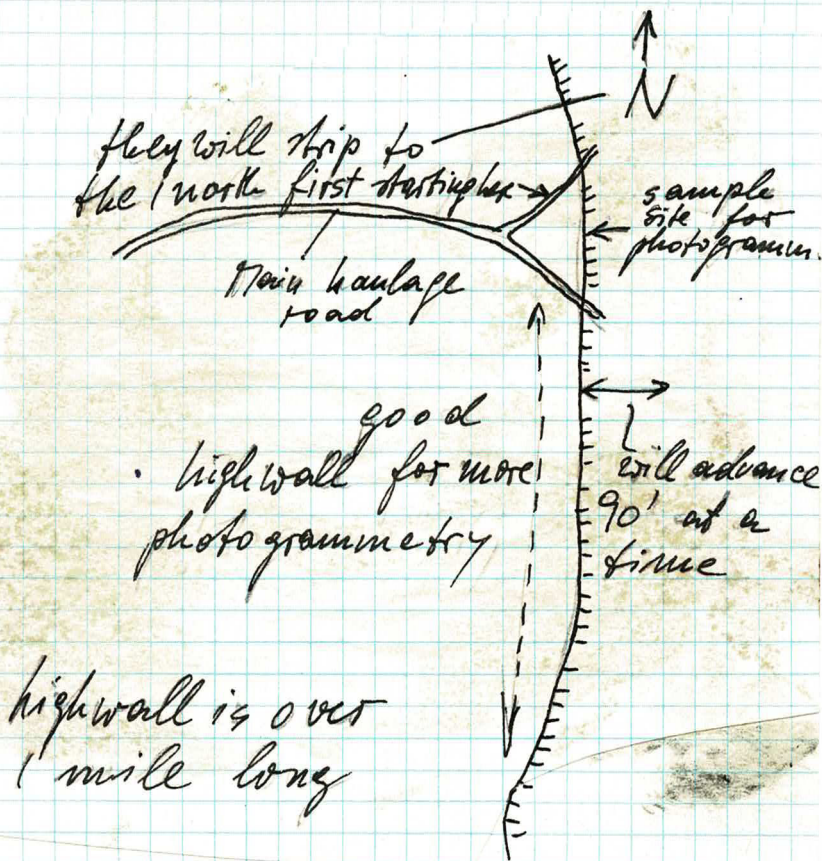 N
they will strip to
the north first starting here
sample
site for
photogramm.
Main haulage
road
good
highwall for more
photogrammetry
will advance
90' at a
time
highwall is over
1 mile long